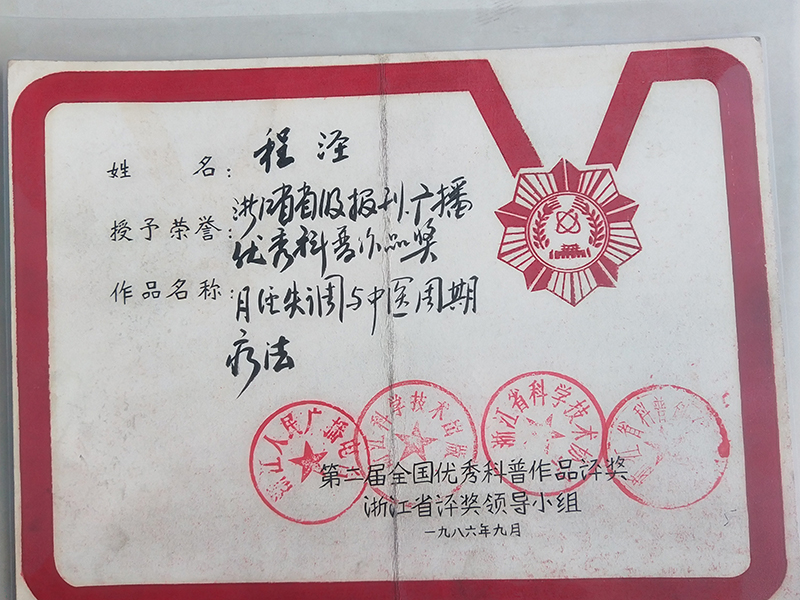 姓名：程泾
授予荣誉：浙江省省级报刊广播
优秀科普作品奖
作品名称：月经失调与中医周期
疗法
浙江人民广播电
江科学技术出版
浙江省科学技术协
江省科普创
第二届全国优秀科普作品评奖
浙江省评奖领导小组
一九八六年九月